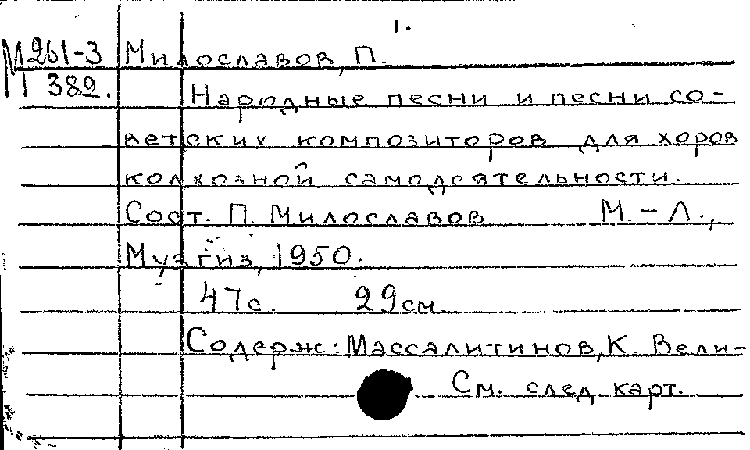 1.
М261-3 Милославов, П.
П 382.
Народные песни и песни со-
ветских композиторов для хоров
колхозной самодеятельности.
Сост. П. Милославов М. - Л.,
Музгиз, 1950.
47с. 29см.
Содерж: Массалитинов, К. Вели-
См. след. карт.